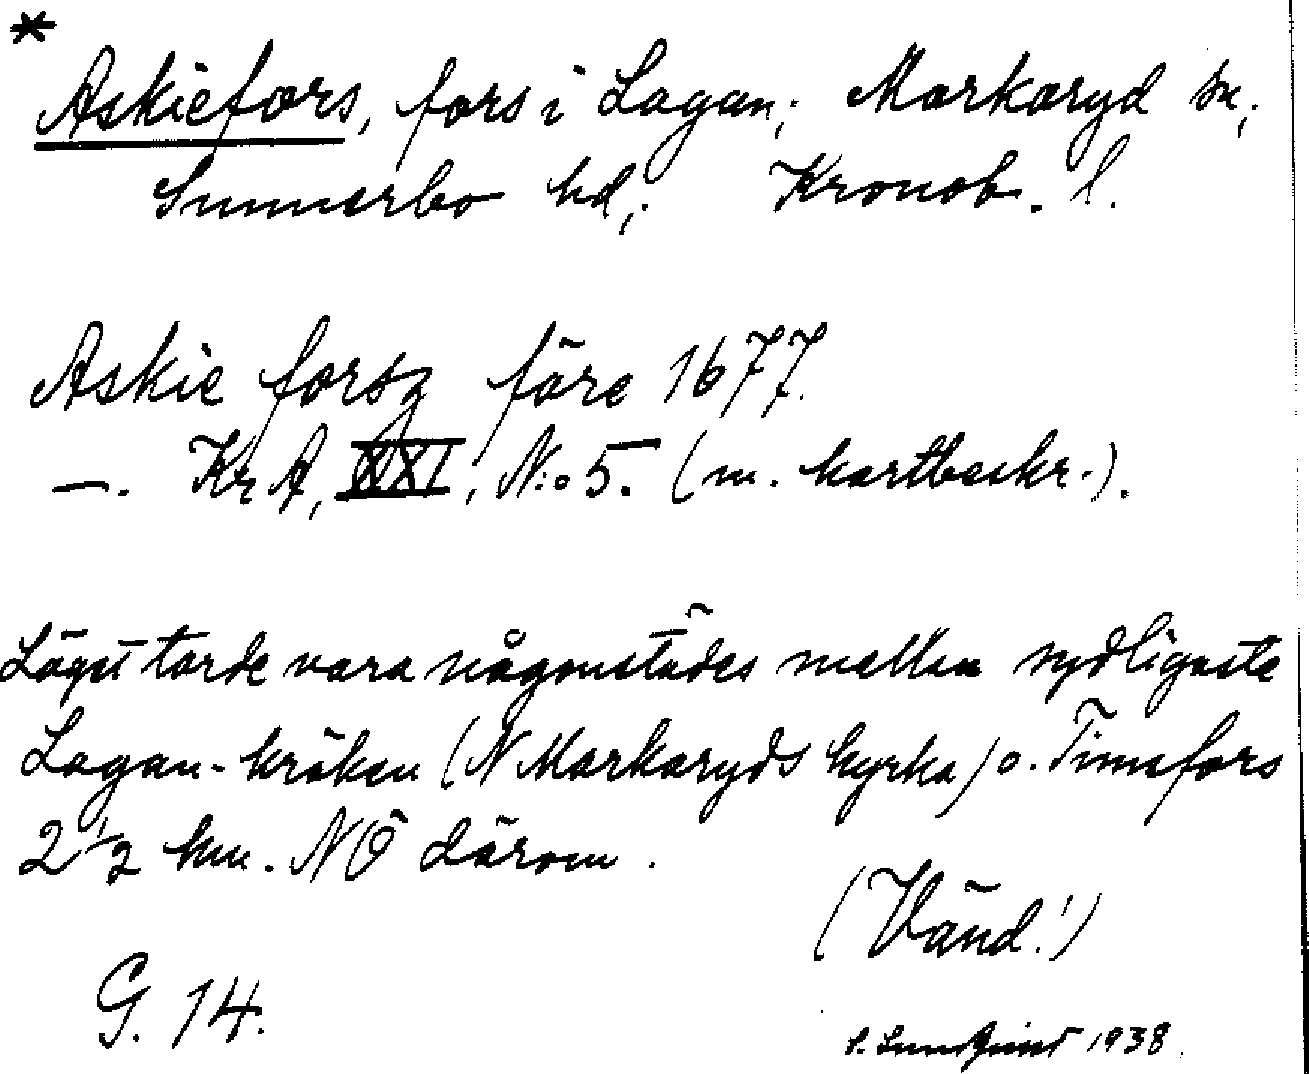 *
Askiefors, fors i Lagan; Markaryd sn;
Sunnerbo hd; Kronob. l.
Askie forsz före 1677.
—. KrA, XXI, N:o 5. (m. kartbeskr.).
Läget torde vara någonstädes mellan sydligaste
Lagan-kröken (N Markaryds kyrka) o. Timsfors
2 1/2 km. NÖ därom.
(Vänd!)
G. 14.
S. Sundqvist 1938.